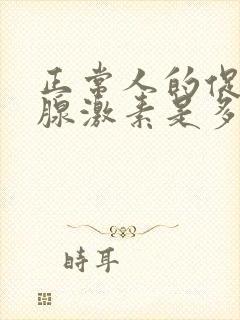 正常人的促
腺激素是多
時耳